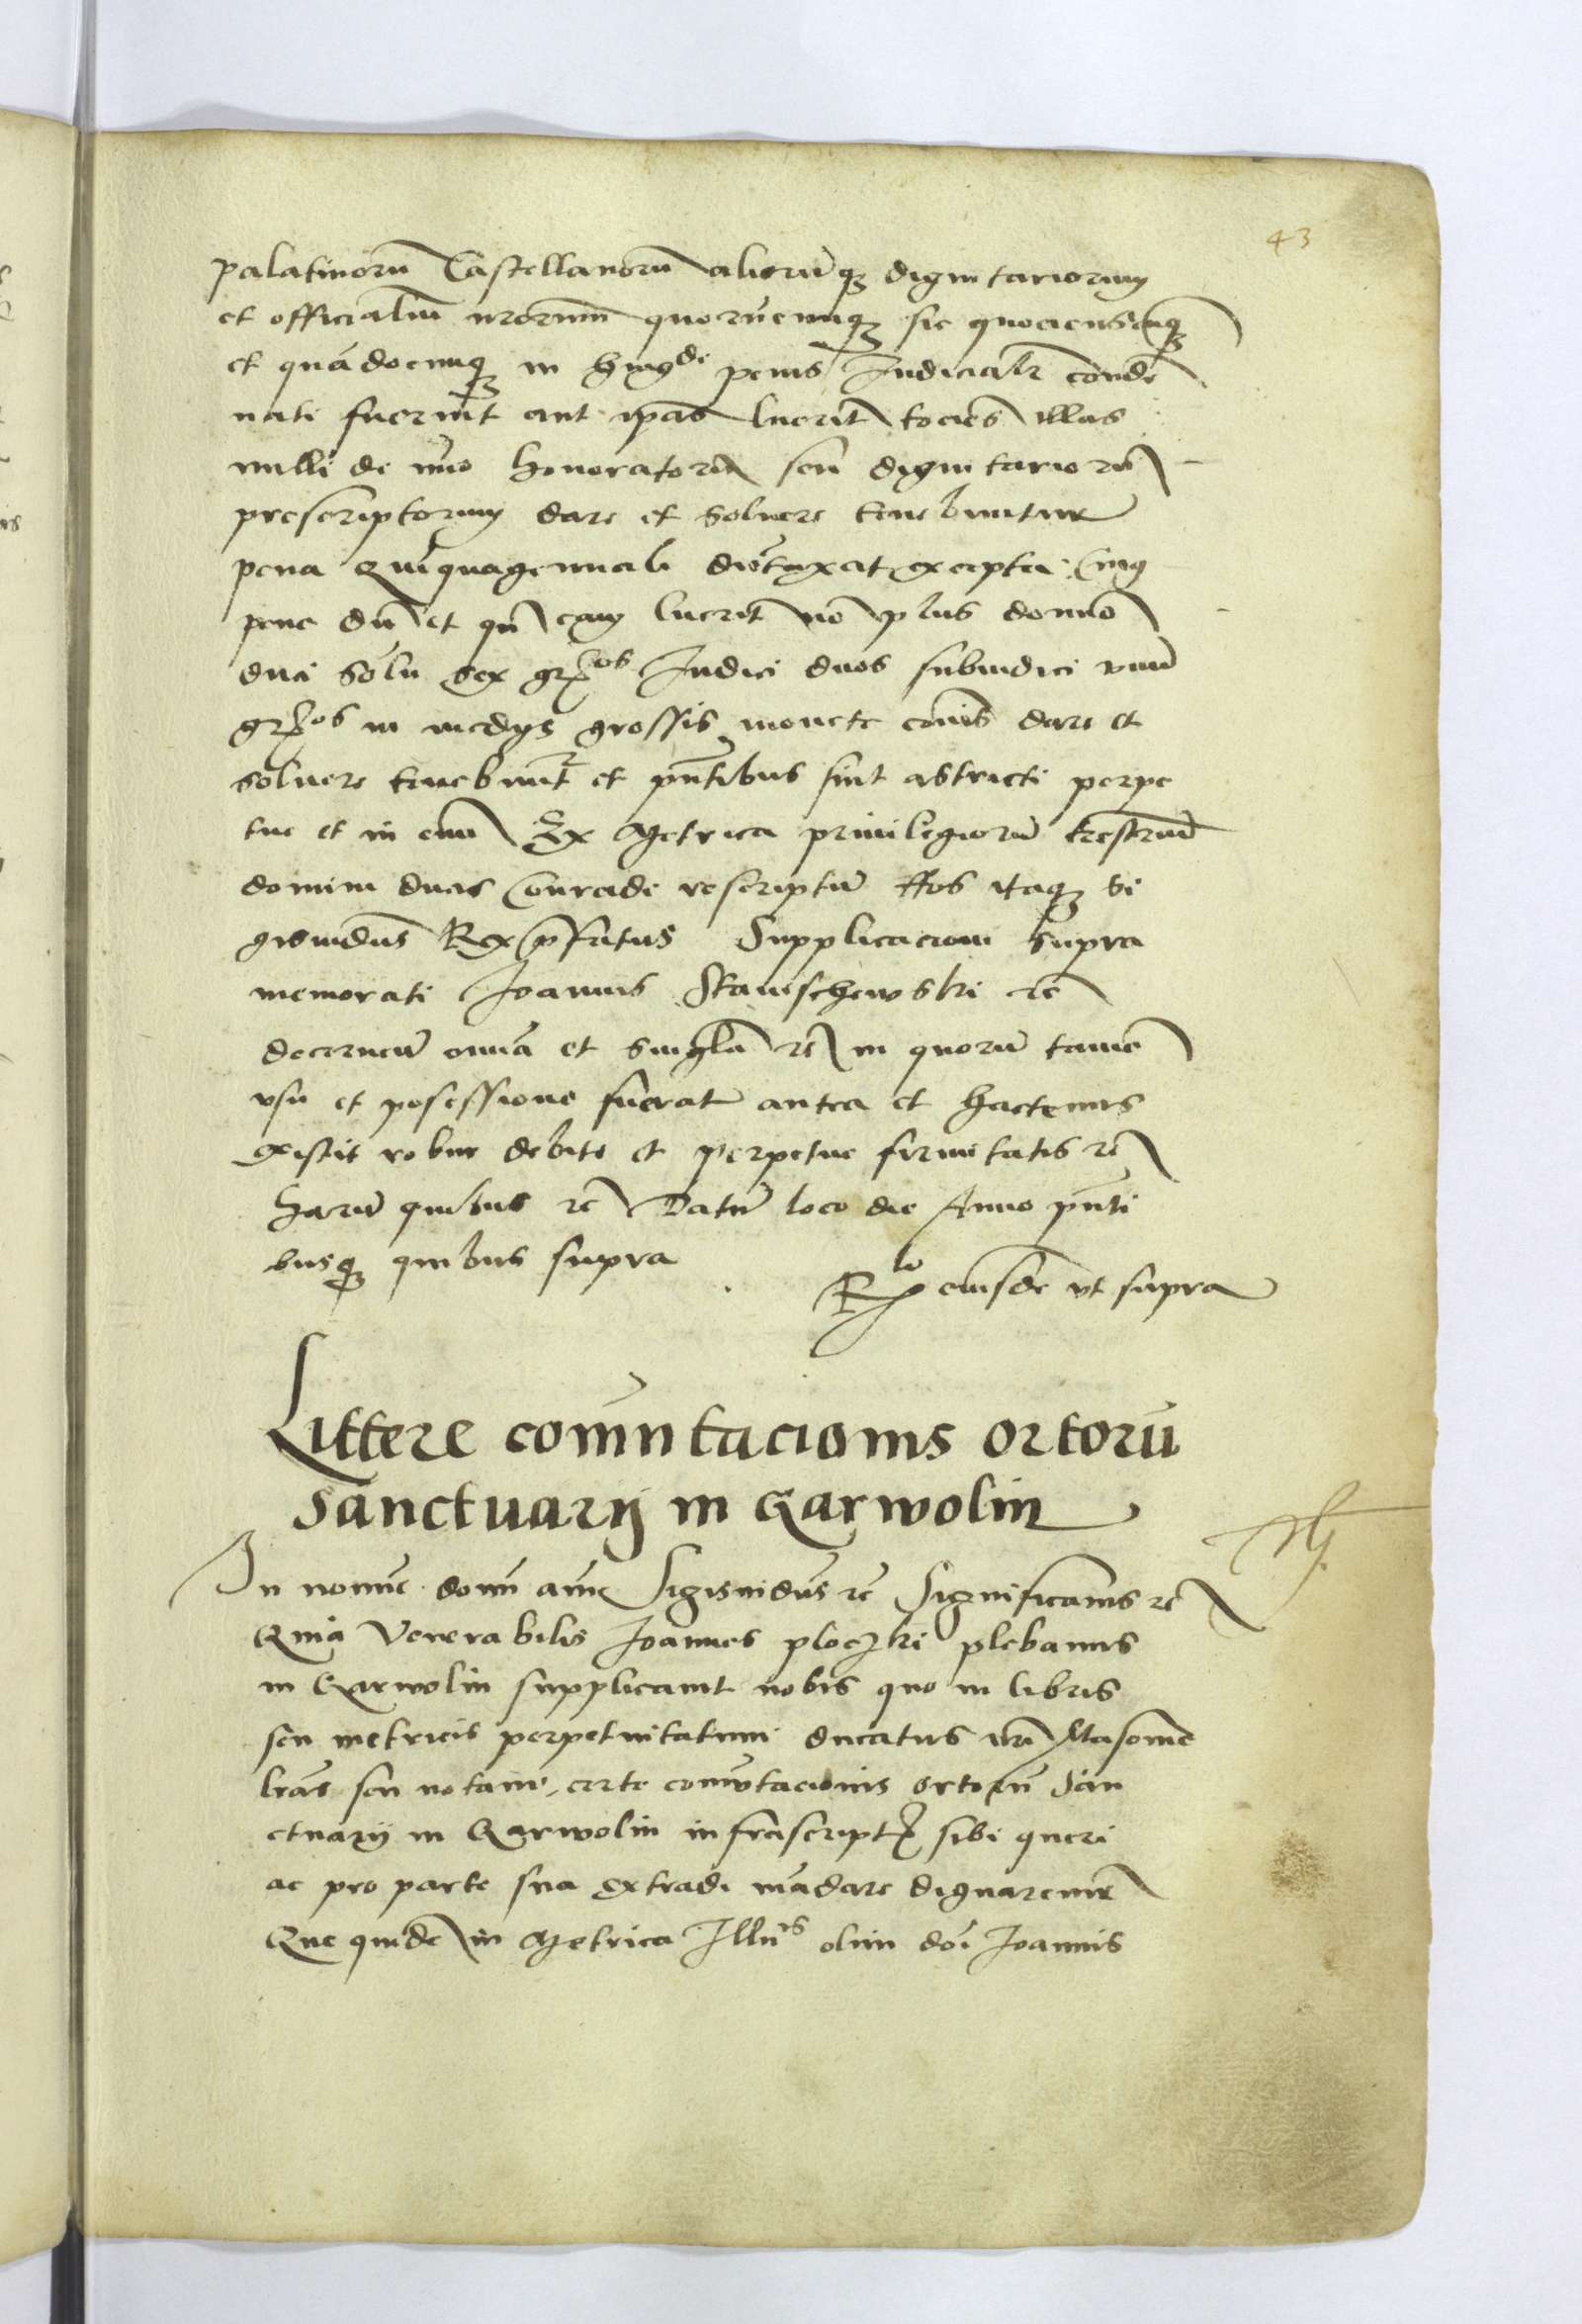 43
palatinorũ Castellanorũ aliorũqꝫ dignitariorum
et officialiũ nr̃orum quorũcumqꝫ sic quociensc̃uqꝫ
et quãdocumqꝫ in hmgdi penis Iudicialr condẽ
nati fuerint aut ipas luerit tocies illas
nulli de nr̃o honoratorũ seu dignitariorũ
prescriptorum dare et soluere tenebuntur
pena Quĩquagennali dũtaxat excepta Cuiꝰ
pene dũ et qñ eam luerit nõ plus domino
duci solũ sex grꝭos Iudici duos subiudici vnũ
grꝭos in medys grossis monete cõis dare et
soluere tenebunt̃ et pñtibus sint astricti perpe
tue et in euũ Ex Metrica priuilegiorũ Illustriũ
domini ducis Conradi rescriptũ Nos itaqꝫ Si
gismũdus Rex pfatus Supplicacioni supra
memorati Joannis Stanischewski etc̃
decernem̃ omnia et singula etc̃ in quorũ tamẽ
vsu et posessione fuerat antea et hactenus
existit robur debite et perpetue firmitatis etc̃
harũ quibus etc̃ Datũ loco die Anno pñti
busqꝫ quibus supra
Rlo eiusdẽ vt supra
Littere comũtacionis ortorũ
Sanctuarij in Garwolin
In nomine domi amẽ Sigismũdus etc̃ Significamus etc̃
Quia Venerabilis Joannes ploczki plebanus
in Garwolin supplicauit nobis quo in libris
seu metricis perpetuitatum ducatus nr̃i Masouie
lr̃as seu notam certe comutacionis ortorũ San
ctuarij in Garwolin infrascriptꝭ sibi queri
ac pro parte sua extradi mãdare dignaremr̃
Que quidẽ in Metrica Illuis olim doi Joannis